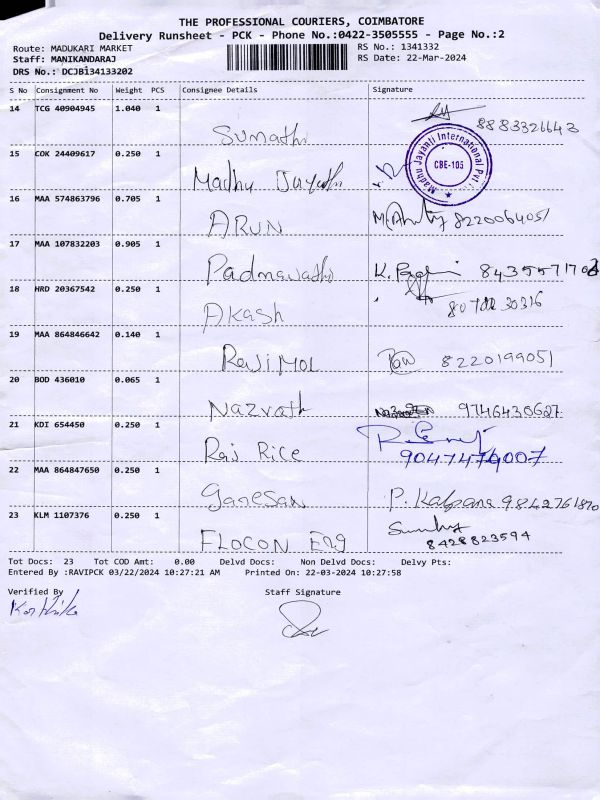 THE PROFESSIONAL COURIERS, COIMBATORE
Delivery Runsheet - PCK - Phone No.:0422-3505555 - Page No.:2
Route: MADUKARI MARKET
RS No.: 1341332
Staff: MANIKANDARAJ
RS Date: 22-Mar-2024
DRS No.: DCJB134133202
S No Consignment No Weight PCS Consignee Details Signature
14 TCG 40904945 1.040 1
Sumathi 8883326643
15 COK 24409617 0.250 1
Madhu Jayathi
Madhu Jayanti International Pvt
CBE-105
16 MAA 574863796 0.705 1
ARUN 8220064051
17 MAA 107832203 0.905 1
Padmavathi
18 HRD 20367542 0.250 1
Akash
19 MAA 864846642 0.140 1
RajiMOL 8220199051
20 BOD 436010 0.065 1
Nazvath 9746430627
21 KDI 654450 0.250 1
Raj Rice 9047474007
22 MAA 864847650 0.250 1
Ganesan P. Kalpana 9842761870
23 KLM 1107376 0.250 1
FLOCON Eng 8428823594
Tot Docs: 23 Tot COD Amt: 0.00 Delvd Docs: Non Delvd Docs: Delvy Pts:
Entered By :RAVIPCK 03/22/2024 10:27:21 AM Printed On: 22-03-2024 10:27:58
Verified By Staff Signature
Karthika